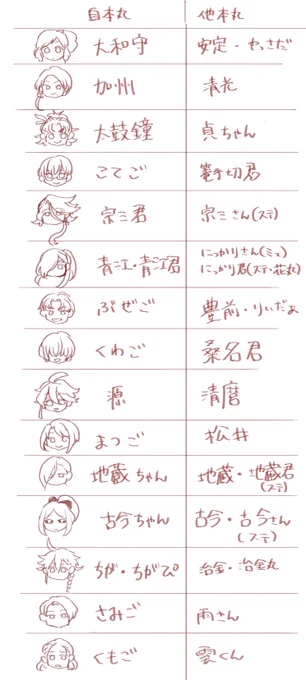 自本丸 他本丸
大和守 安定・やっさだ
加州 清光
太鼓鐘 貞ちゃん
こてご 篭手切君
宗三君 宗三さん(ステ)
青江・青江君 にっかりさん(ミュ)
にっかり君(ステ・花丸)
ぶぜご 豊前・りいだぁ
くわご 桑名君
源 清麿
まつご 松井
地蔵ちゃん 地蔵・地蔵君
(ステ)
古今ちゃん 古今・古今さん
(ステ)
ちが・ちがぴ 治金・治金丸
さみご 雨さん
くもご 雲くん